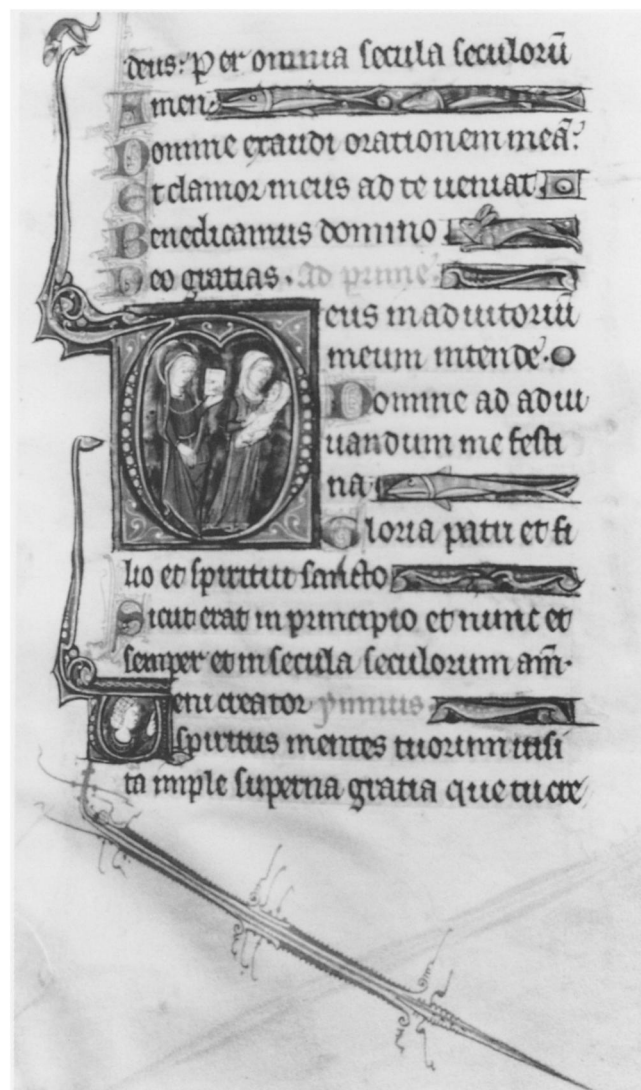 deus: Per omnia secula seculorū
Amen.
Domine exaudi orationem meā.
Et clamor meus ad te ueniat.
Benedicamus domino
Deo gratias. ad prime.
eus in adiutoriū
meum intende.
Domine ad adiu
uandum me festi
na.
Gloria patri et fi
lio et spiritui sancto
Sicut erat in principio et nunc et
semper et in secula seculorum am̄.
Veni creator ymnus
spiritus mentes tuorum uisi
ta imple superna gratia que tu cre